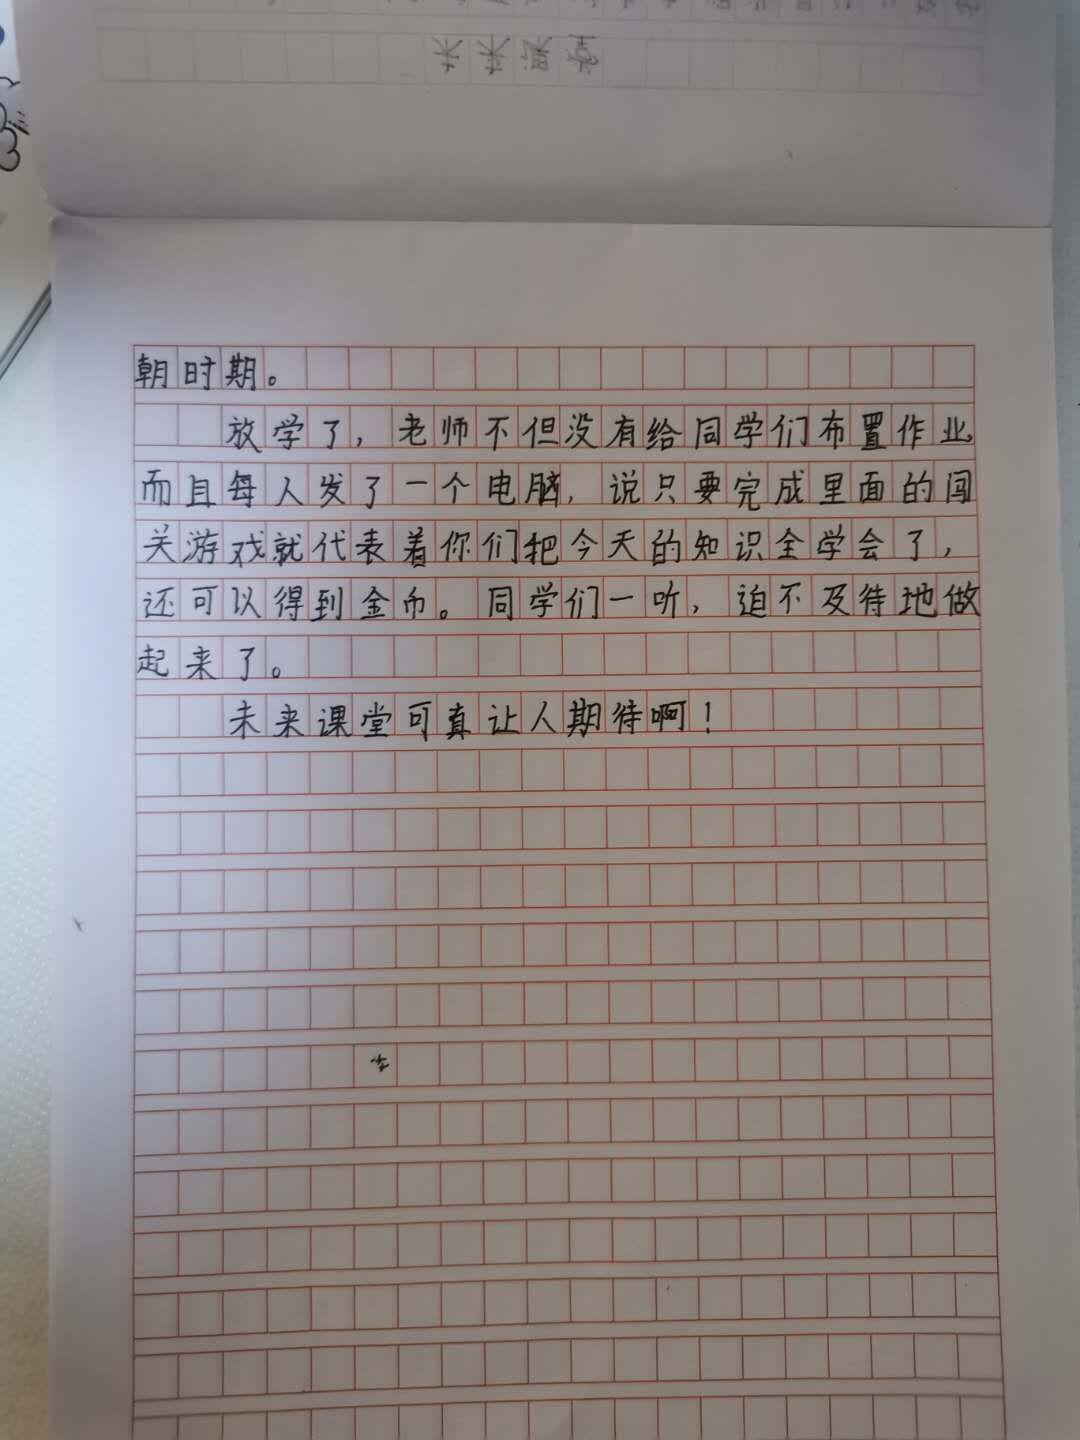 未来课堂
朝时期。
放学了，老师不但没有给同学们布置作业
而且每人发了一个电脑，说只要完成里面的闯
关游戏就代表着你们把今天的知识全学会了，
还可以得到金币。同学们一听，迫不及待地做
起来了。
未来课堂可真让人期待啊！